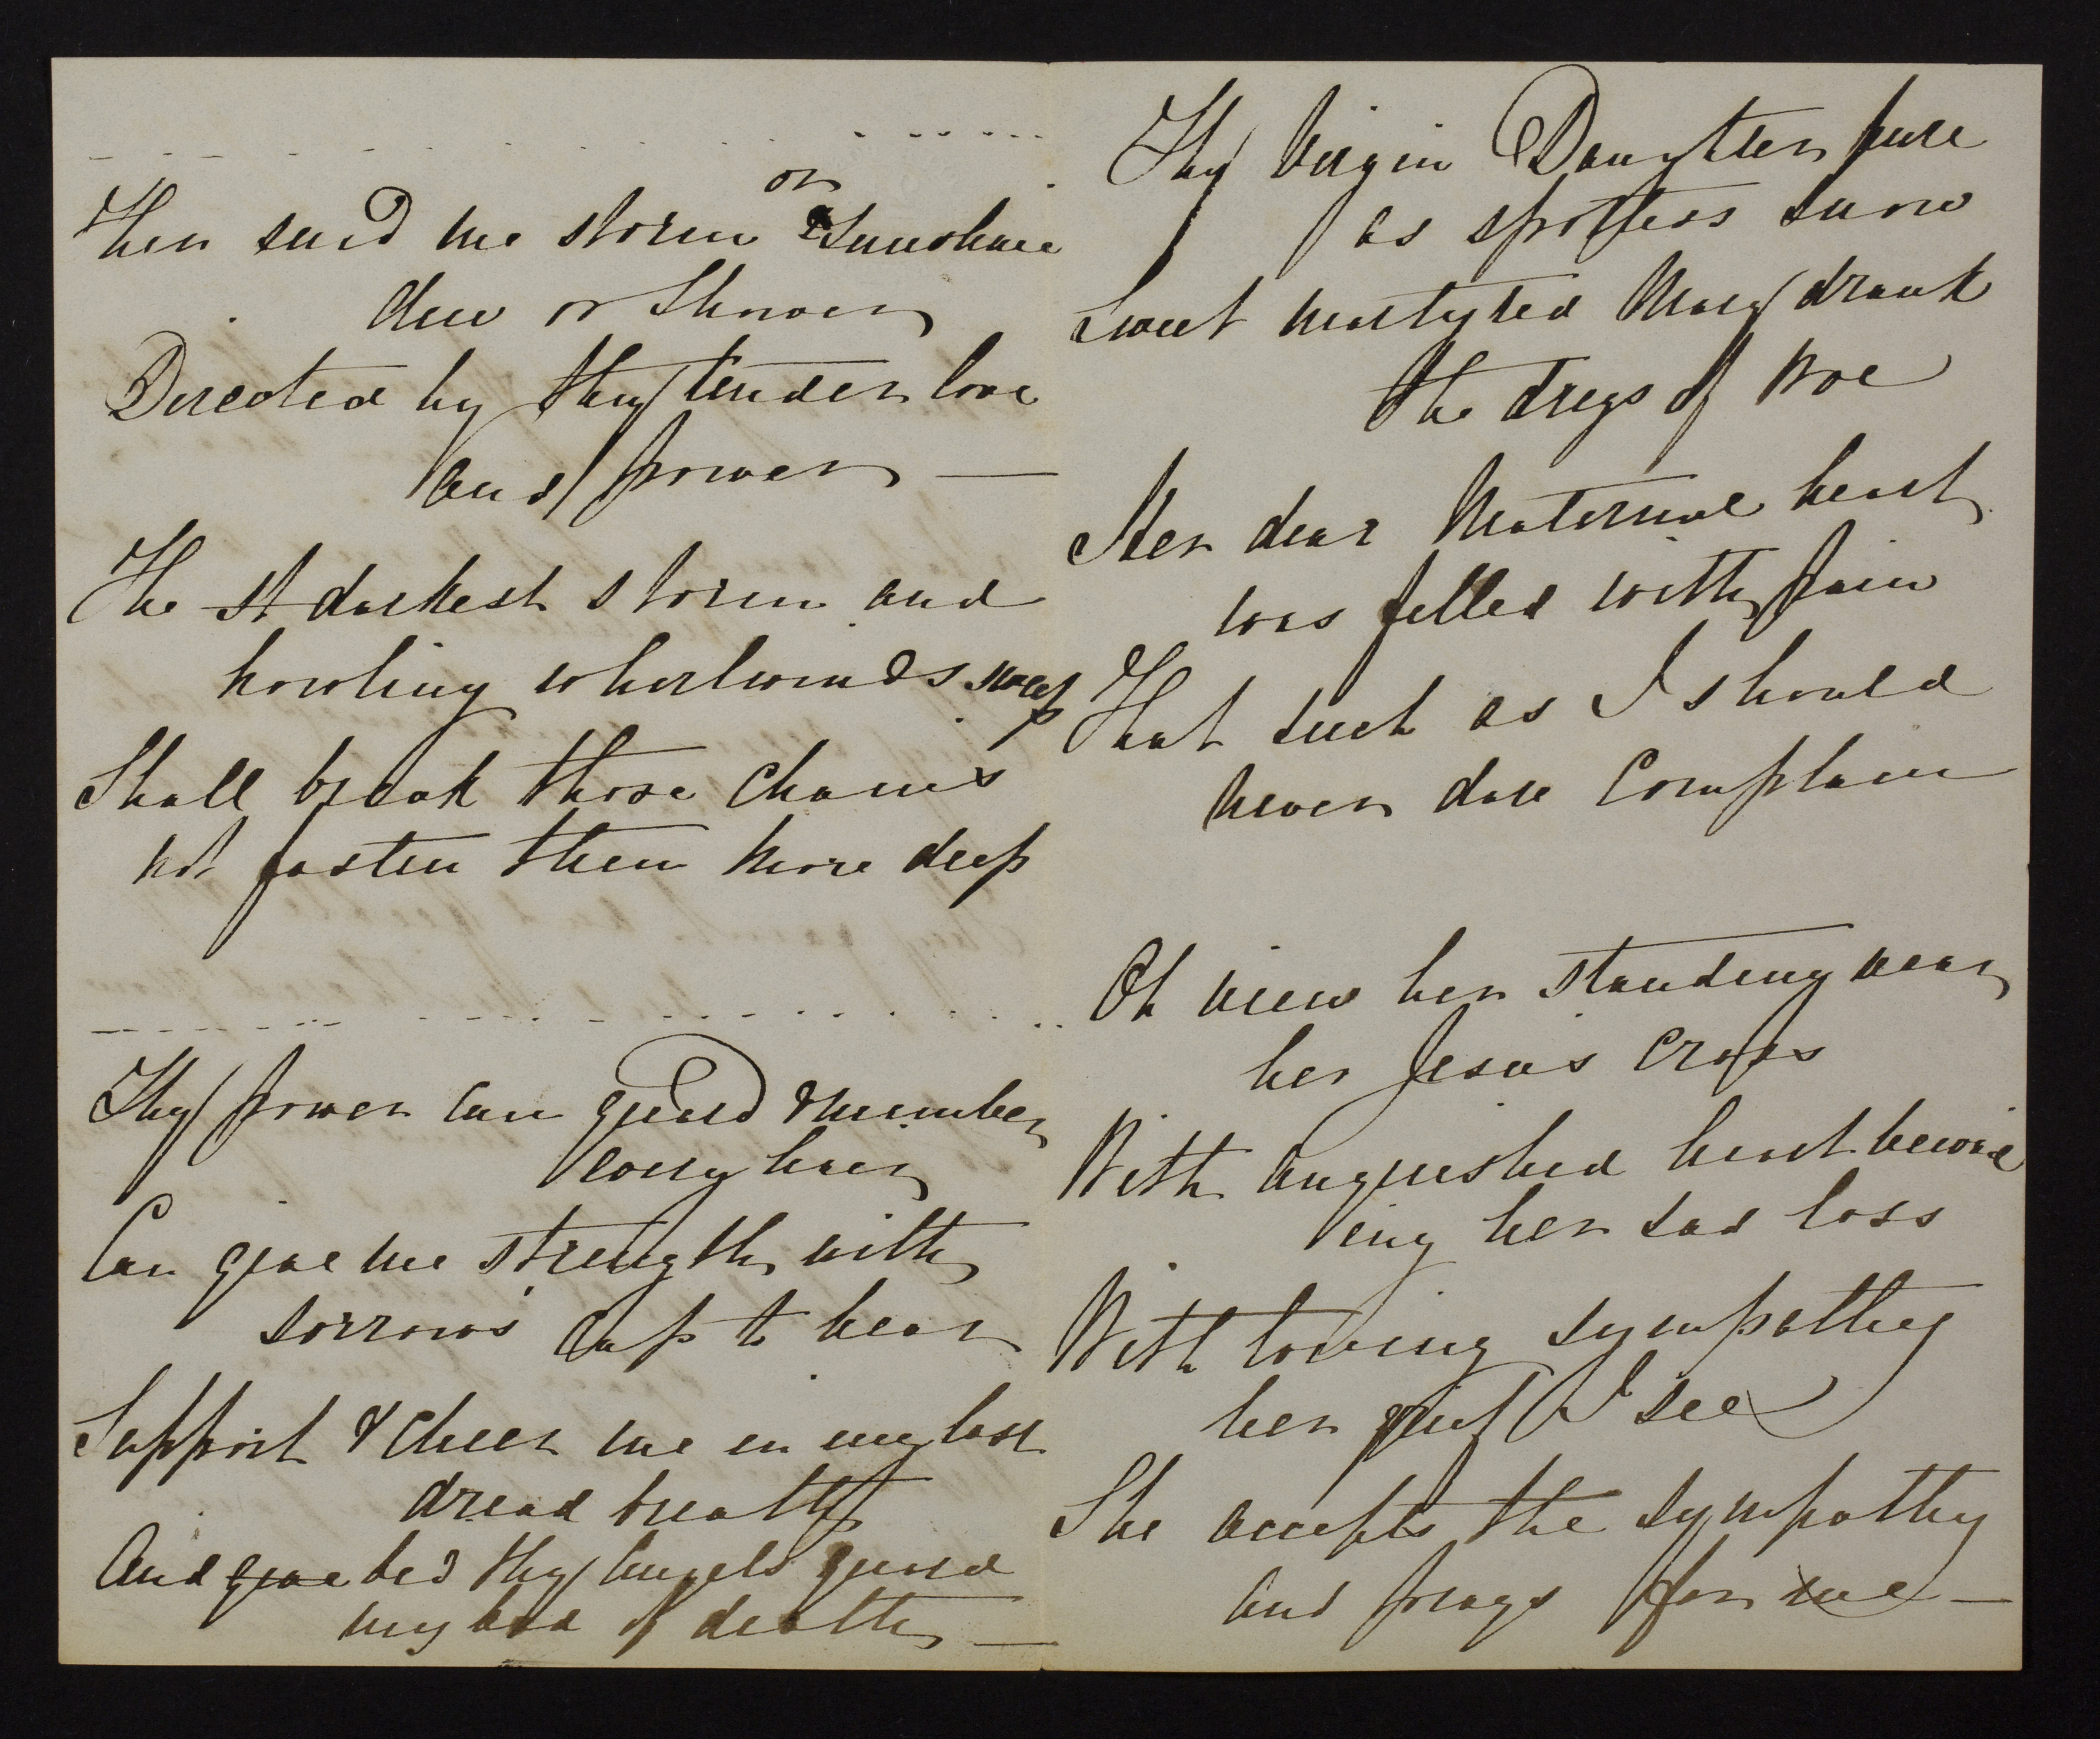 Then send me storm or Sunshine
dew or Shower
Directed by thy tender love
and power —
The st darkest storm and
howling whirlwinds sweep
Shall break those chains
not fasten them more deep
Thy power can guard & number
every hair
Can give me strength with
sorrows' cup to bear
Support & cheer me in my last
dread breath
And give bid thy Angels guard
my bed of death —
Thy Virgin Daughter pure
as spotless snow
Sweet martyred Mary drank
the dregs of woe
Her dear Maternal heart
was filled with pain
That such as I should
never dare Complain
Oh view her standing near
her Jesus' Cross
With anguished heart bewail
ing her sad loss
With loving sympathy
her grief I see
She accepts the sympathy
and prays for me —